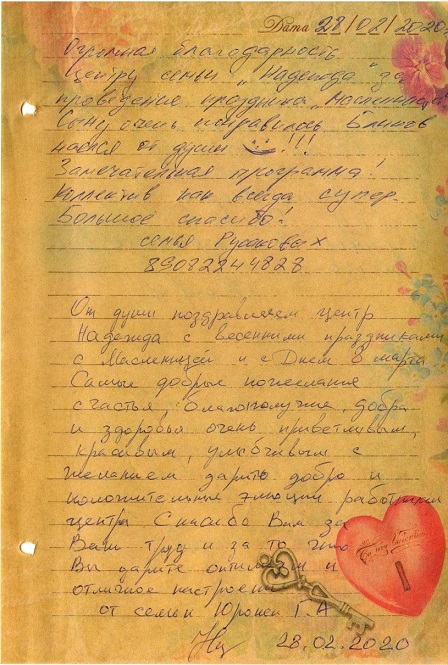 Дата 28/02/2020
Огромная благодарность
Центру семьи „Надежда" за
проведение праздника „Масленица".
Сыну очень понравилось Блинов
наелся от души !!!
Замечательная программа!
Коллектив как всегда супер.
Большое спасибо!
семья Русаковых
89082244828
От души поздравляем центр
Надежда с весенними праздниками
с Масленицей и с Днем 8 марта
Самые добрые пожелания
счастья, благополучия, добра
и здоровья очень приветливым,
красивым, улыбчивым с
желанием дарить добро и
положительные эмоции работникам
центра Спасибо Вам за
Ваш труд и за то что
Вы дарите оптимизм и
отличное настроение
от семьи Г.А
28.02.2020